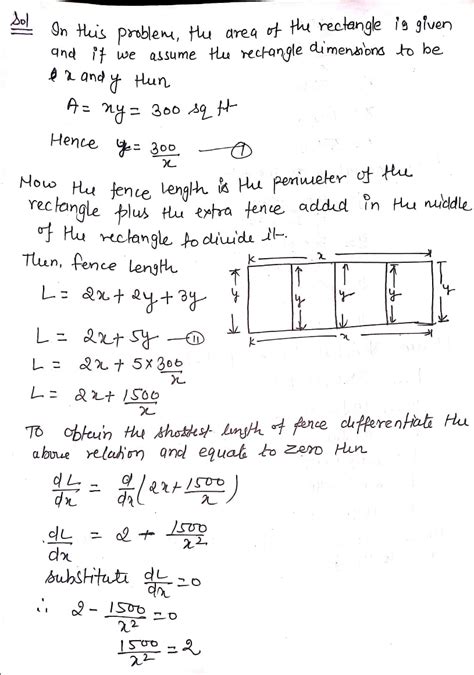 Sol
In this problem, the area of the rectangle is given
and if we assume the rectangle dimensions to be
x and y then
A = xy = 300 sq ft
Hence y = 300/x — (I)
Now the fence length is the perimeter of the
rectangle plus the extra fence added in the middle
of the rectangle to divide it.
Then, fence length
L = 2x + 2y + 3y
L = 2x + 5y — (II)
L = 2x + 5 × 300/x
L = 2x + 1500/x
x
y y y y y
x
To obtain the shortest length of fence differentiate the
above relation and equate to zero then
dL/dx = d/dx (2x + 1500/x)
dL/dx = 2 - 1500/x²
substitute dL/dx = 0
∴ 2 - 1500/x² = 0
1500/x² = 2